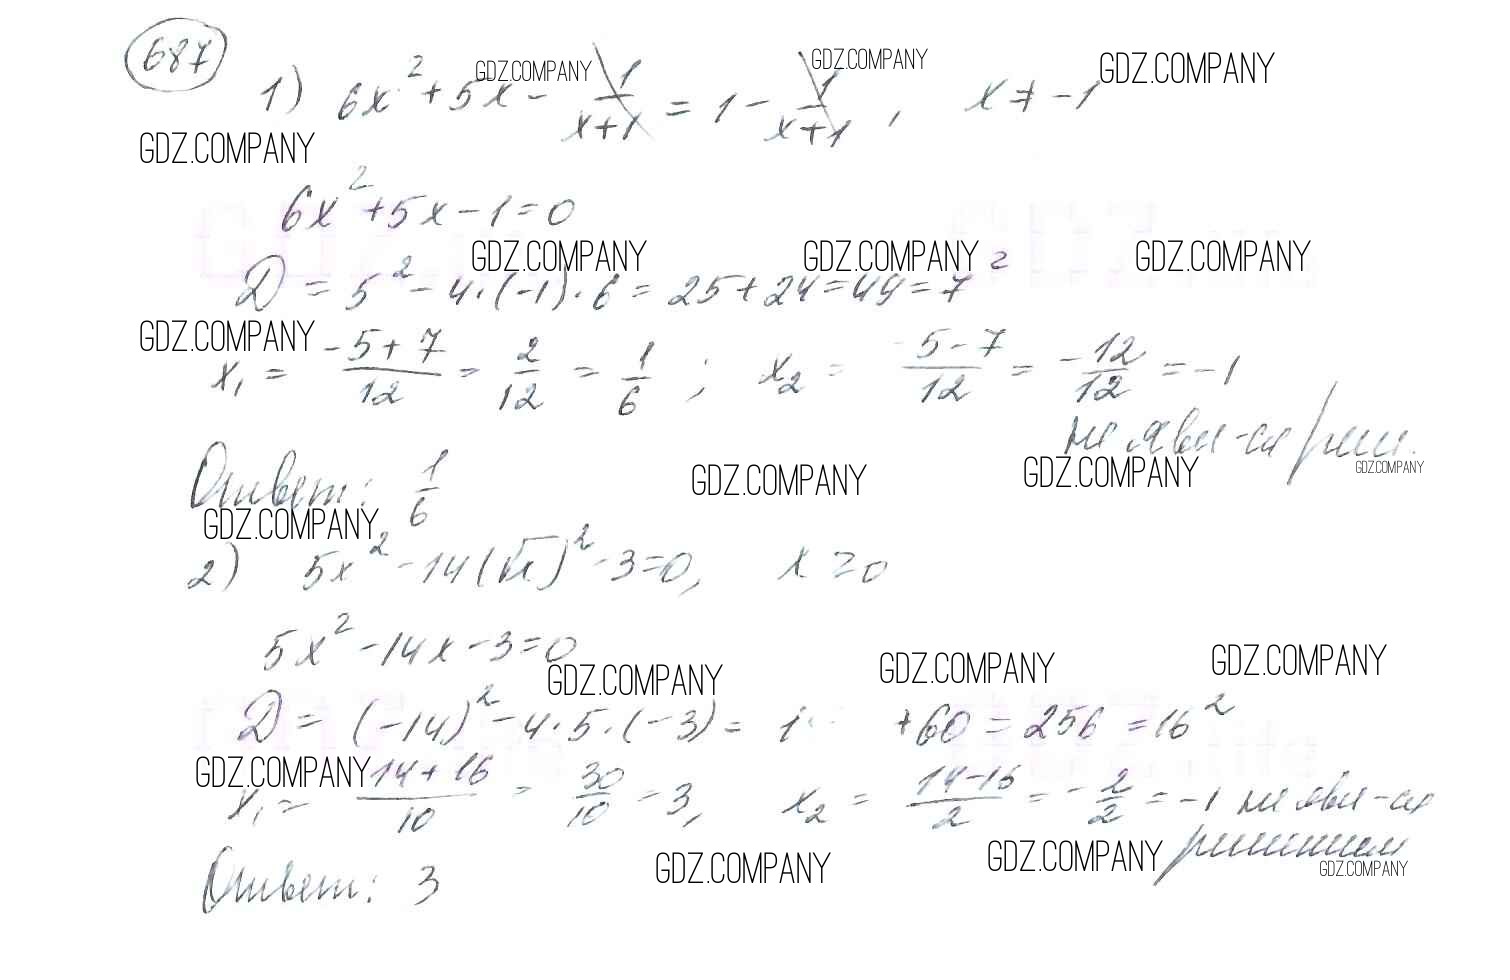 687
GDZ.COMPANY GDZ.COMPANY GDZ.COMPANY
1) 6x² + 5x - 1/(x+1) = 1 - 1/(x+1) , x ≠ -1
GDZ.COMPANY
6x² + 5x - 1 = 0
GDZ.COMPANY GDZ.COMPANY GDZ.COMPANY
D = 5² - 4·(-1)·6 = 25 + 24 = 49 = 7²
GDZ.COMPANY
x₁ = (-5+7)/12 = 2/12 = 1/6 ; x₂ = (-5-7)/12 = -12/12 = -1
не явл-ся реш.
GDZ.COMPANY GDZ.COMPANY GDZ.COMPANY
Ответ: 1/6
GDZ.COMPANY
2) 5x² - 14(√x)² - 3 = 0, x ≥ 0
5x² - 14x - 3 = 0
GDZ.COMPANY GDZ.COMPANY GDZ.COMPANY
D = (-14)² - 4·5·(-3) = 1 + 60 = 256 = 16²
GDZ.COMPANY
x₁ = (14+16)/10 = 30/10 = 3, x₂ = (14-16)/2 = -2/2 = -1 не явл-ся
решением
GDZ.COMPANY GDZ.COMPANY GDZ.COMPANY
Ответ: 3